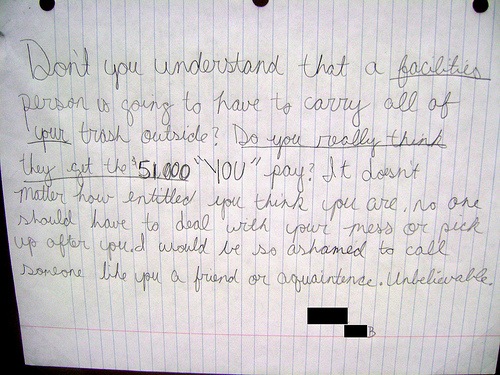 Don't you understand that a facilities
person is going to have to carry all of
your trash outside? Do you really think
they get the $51,000 "YOU" pay? It doesn't
matter how entitled you think you are, no one
should have to deal with your mess or pick
up after you. I would be so ashamed to call
someone like you a friend or aquaintence. Unbelievable.
B